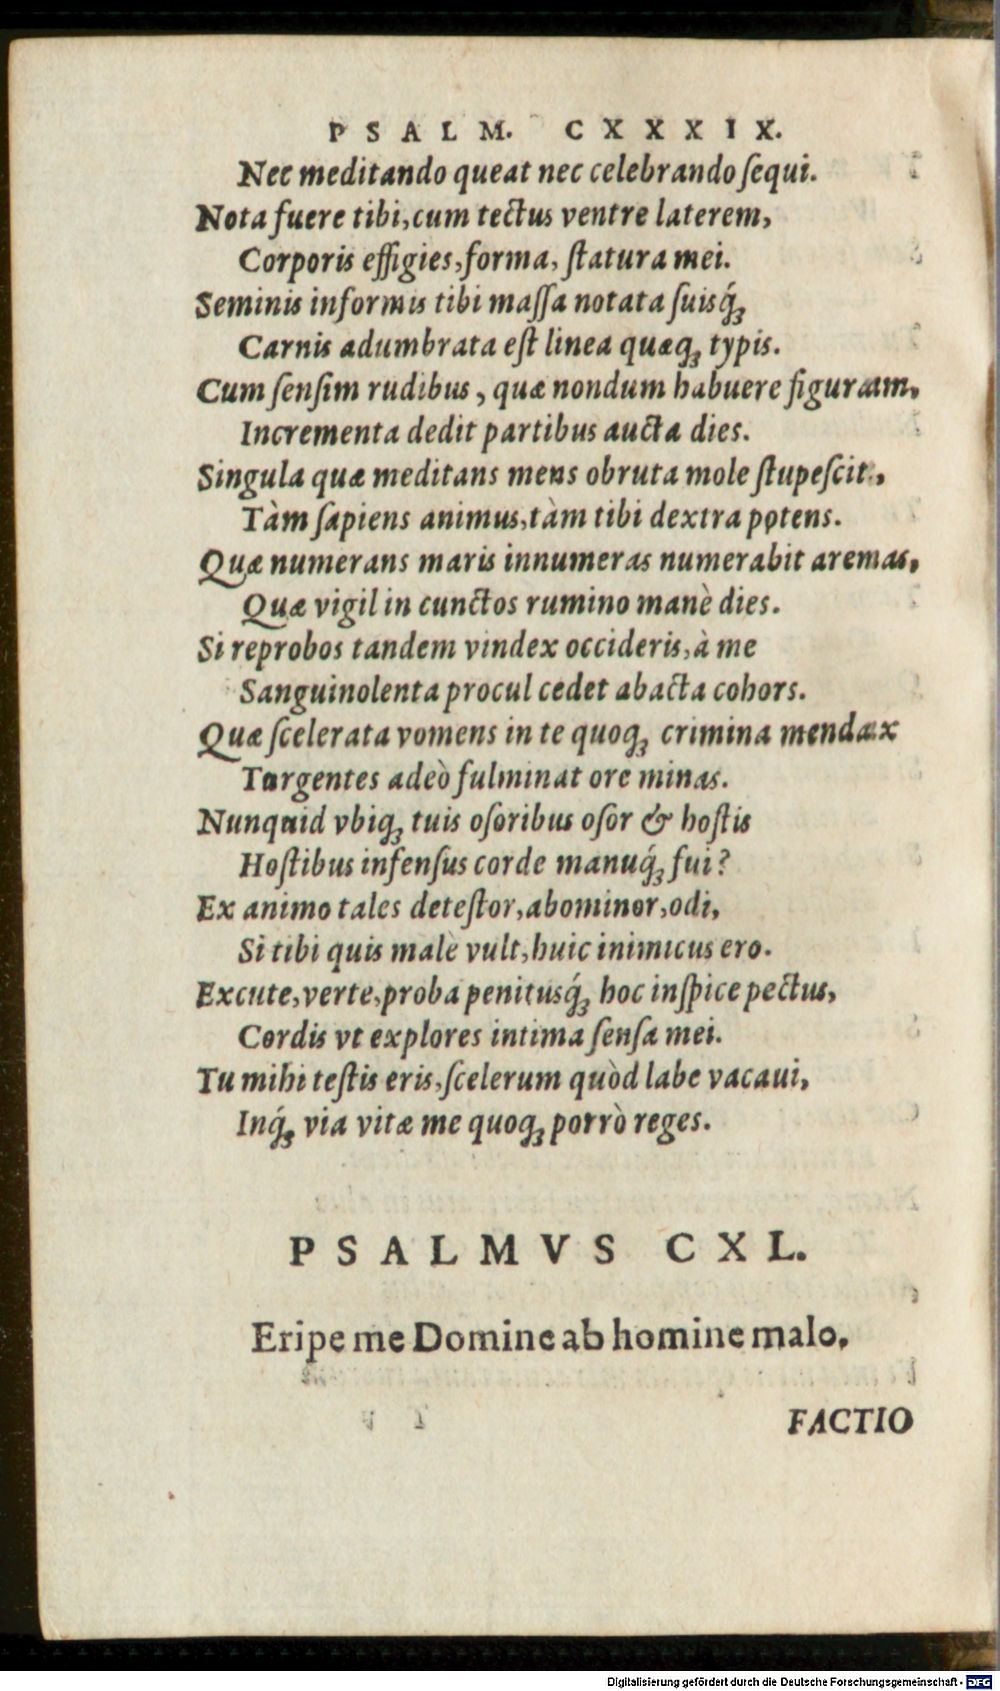 PSALM. CXXXIX.
Nec meditando queat nec celebrando ſequi.
Nota fuere tibi, cum tectus ventre laterem,
Corporis effigies, forma, ſtatura mei.
Seminis informis tibi maſſa notata ſuisq́ꝫ
Carnis adumbrata eſt linea quæqꝫ typis.
Cum ſenſim rudibus, quæ nondum habuere figuram,
Incrementa dedit partibus aucta dies.
Singula quæ meditans mens obruta mole ſtupeſcit,
Tàm ſapiens animus, tàm tibi dextra potens.
Quæ numerans maris innumeras numerabit arenas,
Quæ vigil in cunctos rumino manè dies.
Si reprobos tandem vindex occideris, à me
Sanguinolenta procul cedet abacta cohors.
Quæ ſcelerata vomens in te quoqꝫ crimina mendax
Turgentes adeò fulminat ore minas.
Nunquid vbiqꝫ tuis oſoribus oſor & hoſtis
Hoſtibus infenſus corde manuq́ꝫ fui?
Ex animo tales deteſtor, abominor, odi,
Si tibi quis malè vult, huic inimicus ero.
Excute, verte, proba penitusq́ꝫ hoc inſpice pectus,
Cordis vt explores intima ſenſa mei.
Tu mihi teſtis eris, ſcelerum quòd labe vacaui,
Inq́ꝫ via vitæ me quoqꝫ porrò reges.
PSALMVS CXL.
Eripe me Domine ab homine malo.
FACTIO
Digitalisierung gefördert durch die Deutsche Forschungsgemeinschaft - DFG